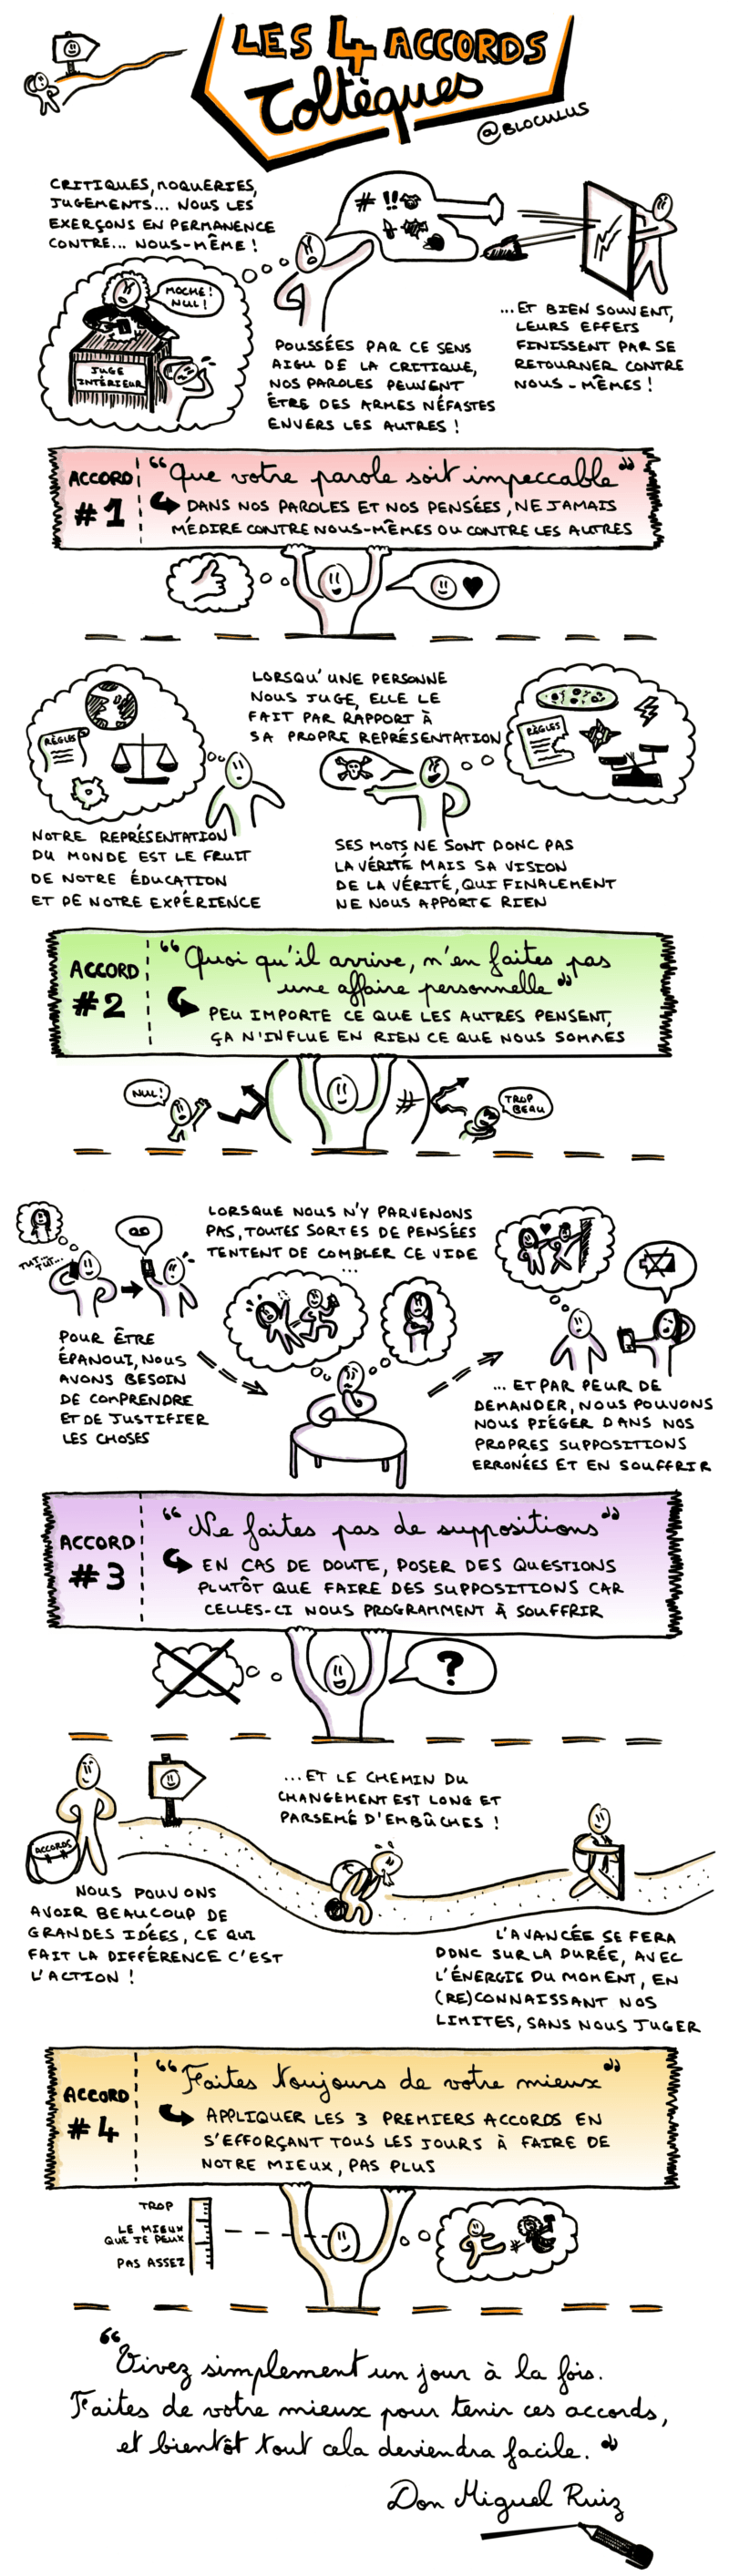 LES 4 ACCORDS
Toltèques
@BLOCULUS
CRITIQUES, MOQUERIES,
JUGEMENTS... NOUS LES
EXERÇONS EN PERMANENCE
CONTRE... NOUS-MÊME !
MOCHE !
NUL !
JUGE
INTÉRIEUR
# !!
POUSSÉES PAR CE SENS
AIGU DE LA CRITIQUE,
NOS PAROLES PEUVENT
ÊTRE DES ARMES NÉFASTES
ENVERS LES AUTRES !
... ET BIEN SOUVENT,
LEURS EFFETS
FINISSENT PAR SE
RETOURNER CONTRE
NOUS-MÊMES !
ACCORD
#1
“Que votre parole soit impeccable”
DANS NOS PAROLES ET NOS PENSÉES, NE JAMAIS
MÉDIRE CONTRE NOUS-MÊMES OU CONTRE LES AUTRES
RÈGLES
LORSQU'UNE PERSONNE
NOUS JUGE, ELLE LE
FAIT PAR RAPPORT À
SA PROPRE REPRÉSENTATION
RÈGLES
NOTRE REPRÉSENTATION
DU MONDE EST LE FRUIT
DE NOTRE ÉDUCATION
ET DE NOTRE EXPÉRIENCE
SES MOTS NE SONT DONC PAS
LA VÉRITÉ MAIS SA VISION
DE LA VÉRITÉ, QUI FINALEMENT
NE NOUS APPORTE RIEN
ACCORD
#2
“Quoi qu'il arrive, n'en faites pas
une affaire personnelle”
PEU IMPORTE CE QUE LES AUTRES PENSENT,
ÇA N'INFLUE EN RIEN CE QUE NOUS SOMMES
NUL !
#
TROP
BEAU
TUT...
TUT...
LORSQUE NOUS N'Y PARVENONS
PAS, TOUTES SORTES DE PENSÉES
TENTENT DE COMBLER CE VIDE
...
POUR ÊTRE
ÉPANOUI, NOUS
AVONS BESOIN
DE COMPRENDRE
ET DE JUSTIFIER
LES CHOSES
... ET PAR PEUR DE
DEMANDER, NOUS POUVONS
NOUS PIÉGER DANS NOS
PROPRES SUPPOSITIONS
ERRONÉES ET EN SOUFFRIR
ACCORD
#3
“Ne faites pas de suppositions”
EN CAS DE DOUTE, POSER DES QUESTIONS
PLUTÔT QUE FAIRE DES SUPPOSITIONS CAR
CELLES-CI NOUS PROGRAMMENT À SOUFFRIR
?
ACCORDS
... ET LE CHEMIN DU
CHANGEMENT EST LONG ET
PARSEMÉ D'EMBÛCHES !
NOUS POUVONS
AVOIR BEAUCOUP DE
GRANDES IDÉES, CE QUI
FAIT LA DIFFÉRENCE C'EST
L'ACTION !
L'AVANCÉE SE FERA
DONC SUR LA DURÉE, AVEC
L'ÉNERGIE DU MOMENT, EN
(RE)CONNAISSANT NOS
LIMITES, SANS NOUS JUGER
ACCORD
#4
“Faites toujours de votre mieux”
APPLIQUER LES 3 PREMIERS ACCORDS EN
S'EFFORÇANT TOUS LES JOURS À FAIRE DE
NOTRE MIEUX, PAS PLUS
TROP
LE MIEUX
QUE JE PEUX
PAS ASSEZ
“Vivez simplement un jour à la fois.
Faites de votre mieux pour tenir ces accords,
et bientôt tout cela deviendra facile.”
Don Miguel Ruiz